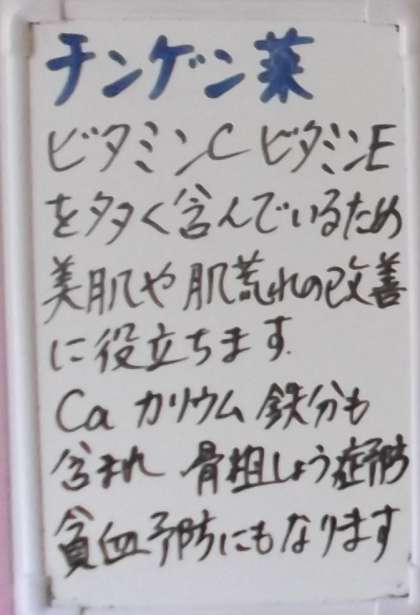 チンゲン菜
ビタミンC ビタミンE
を多く含んでいるため
美肌や肌荒れの改善
に役立ちます.
Ca カリウム 鉄分も
含まれ 骨粗しょう症予防
貧血予防にもなります